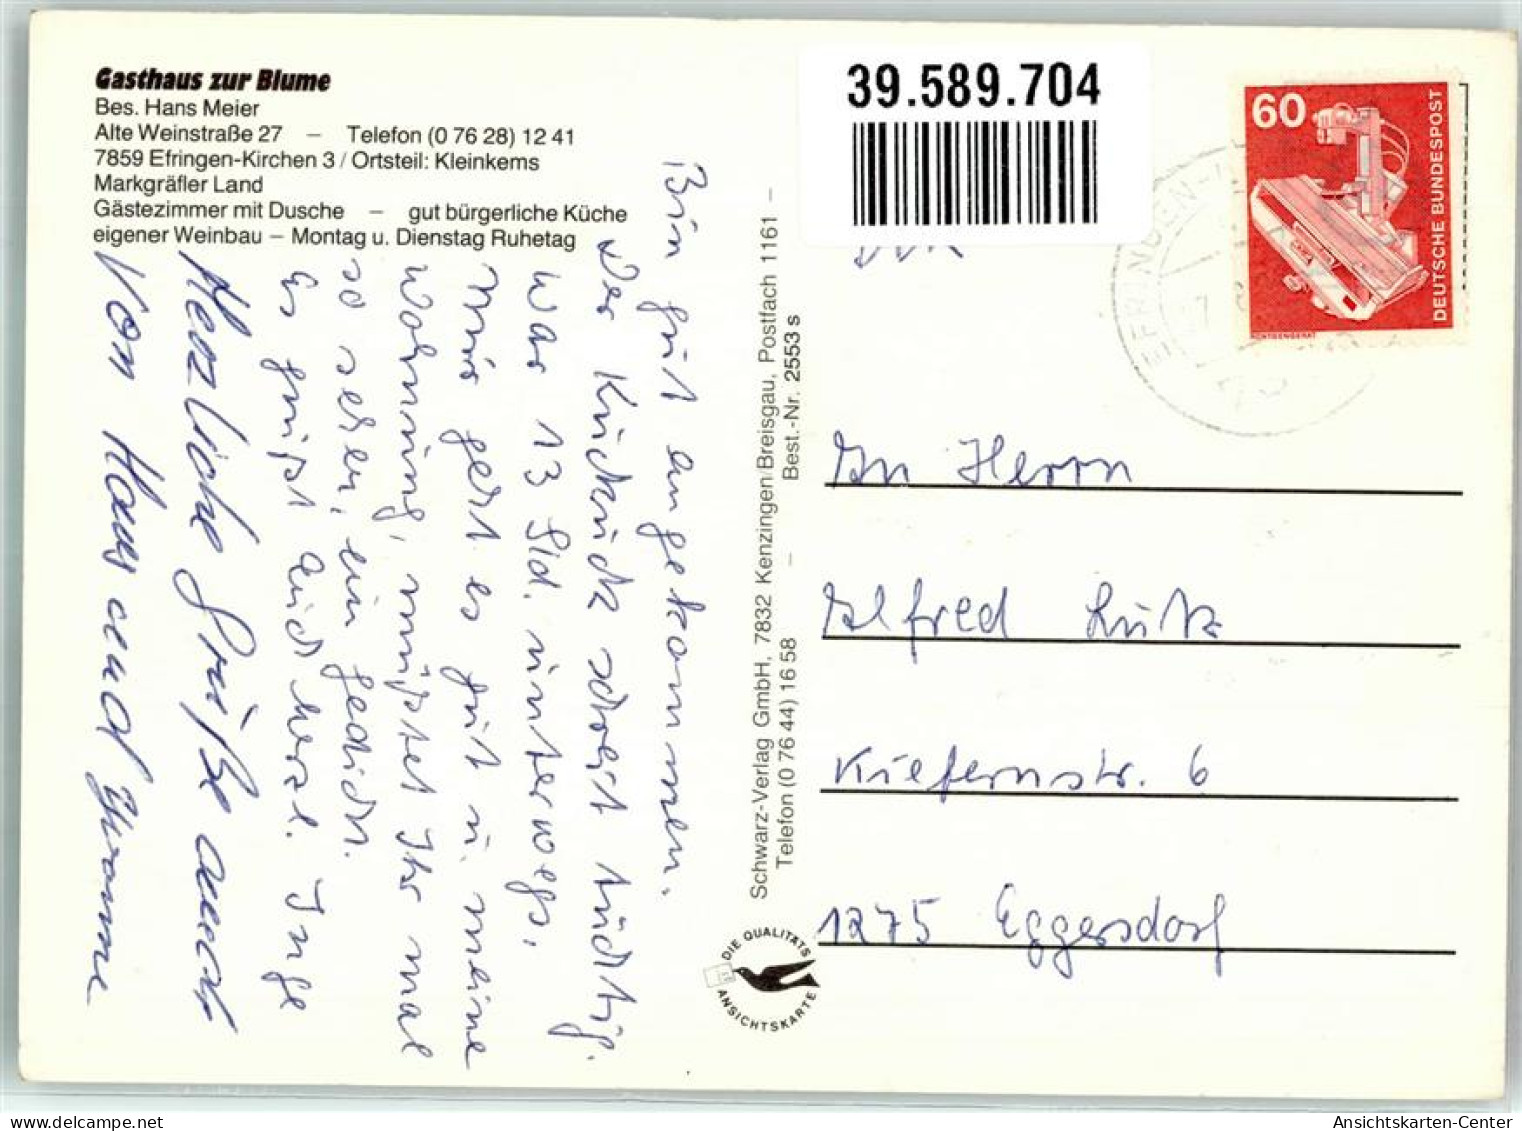 Gasthaus zur Blume
Bes. Hans Meier
Alte Weinstraße 27 – Telefon (0 76 28) 12 41
7859 Efringen-Kirchen 3 / Ortsteil: Kleinkems
Markgräfler Land
Gästezimmer mit Dusche – gut bürgerliche Küche
eigener Weinbau – Montag u. Dienstag Ruhetag
Bin gut angekommen.
Der Kuckuck schreit tüchtig.
War 13 Std. unterwegs,
mir geht es gut u. meine
Wohnung, müßtet Ihr mal
so sehen, ein Gedicht.
Es grüßt Euch herzl. Inge
Herzliche Grüße auch
von Hans und
Schwarz-Verlag GmbH, 7832 Kenzingen/Breisgau, Postfach 1161 –
Telefon (0 76 44) 16 58 – Best.-Nr. 2553 s
DIE QUALITÄTS
ANSICHTSKARTE
39.589.704
DDR
60
DEUTSCHE BUNDESPOST
RÖNTGENGERÄT
EFRINGEN-
An Herrn
Alfred Lutz
Kiefernstr. 6
1275 Eggersdorf
Ansichtskarten-Center